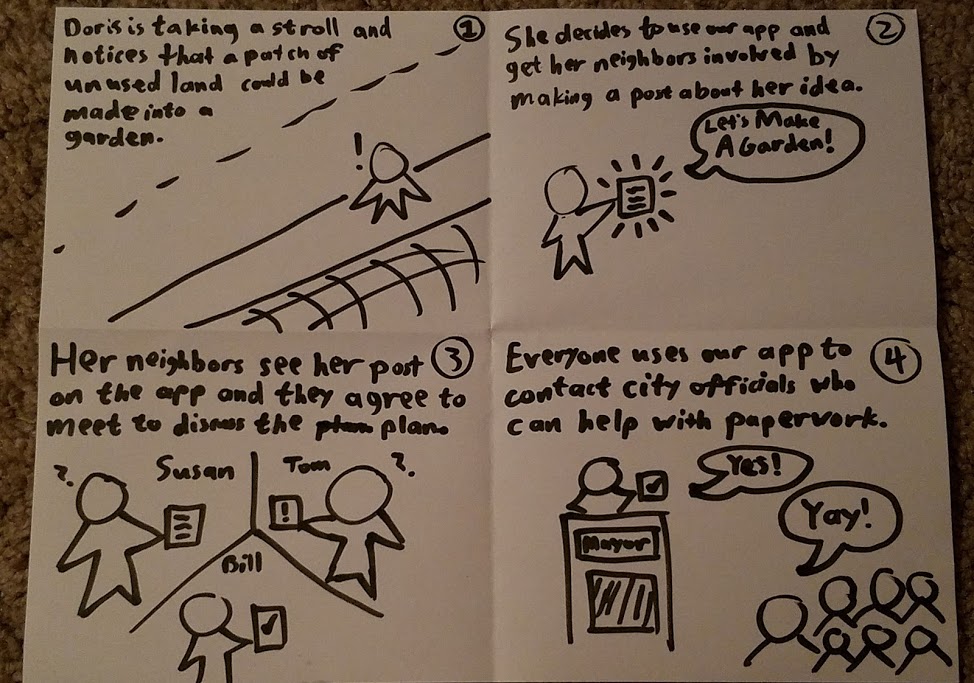 Doris is taking a stroll and
notices that a patch of
unused land could be
made into a
garden.
1
!
She decides to use our app and
get her neighbors involved by
making a post about her idea.
2
Let's Make
A Garden!
Her neighbors see her post
on the app and they agree to
meet to discuss the plan plan.
3
?
Susan
Tom
?
!
Bill
Everyone uses our app to
contact city officials who
can help with paperwork.
4
Yes!
Yay!
Mayor